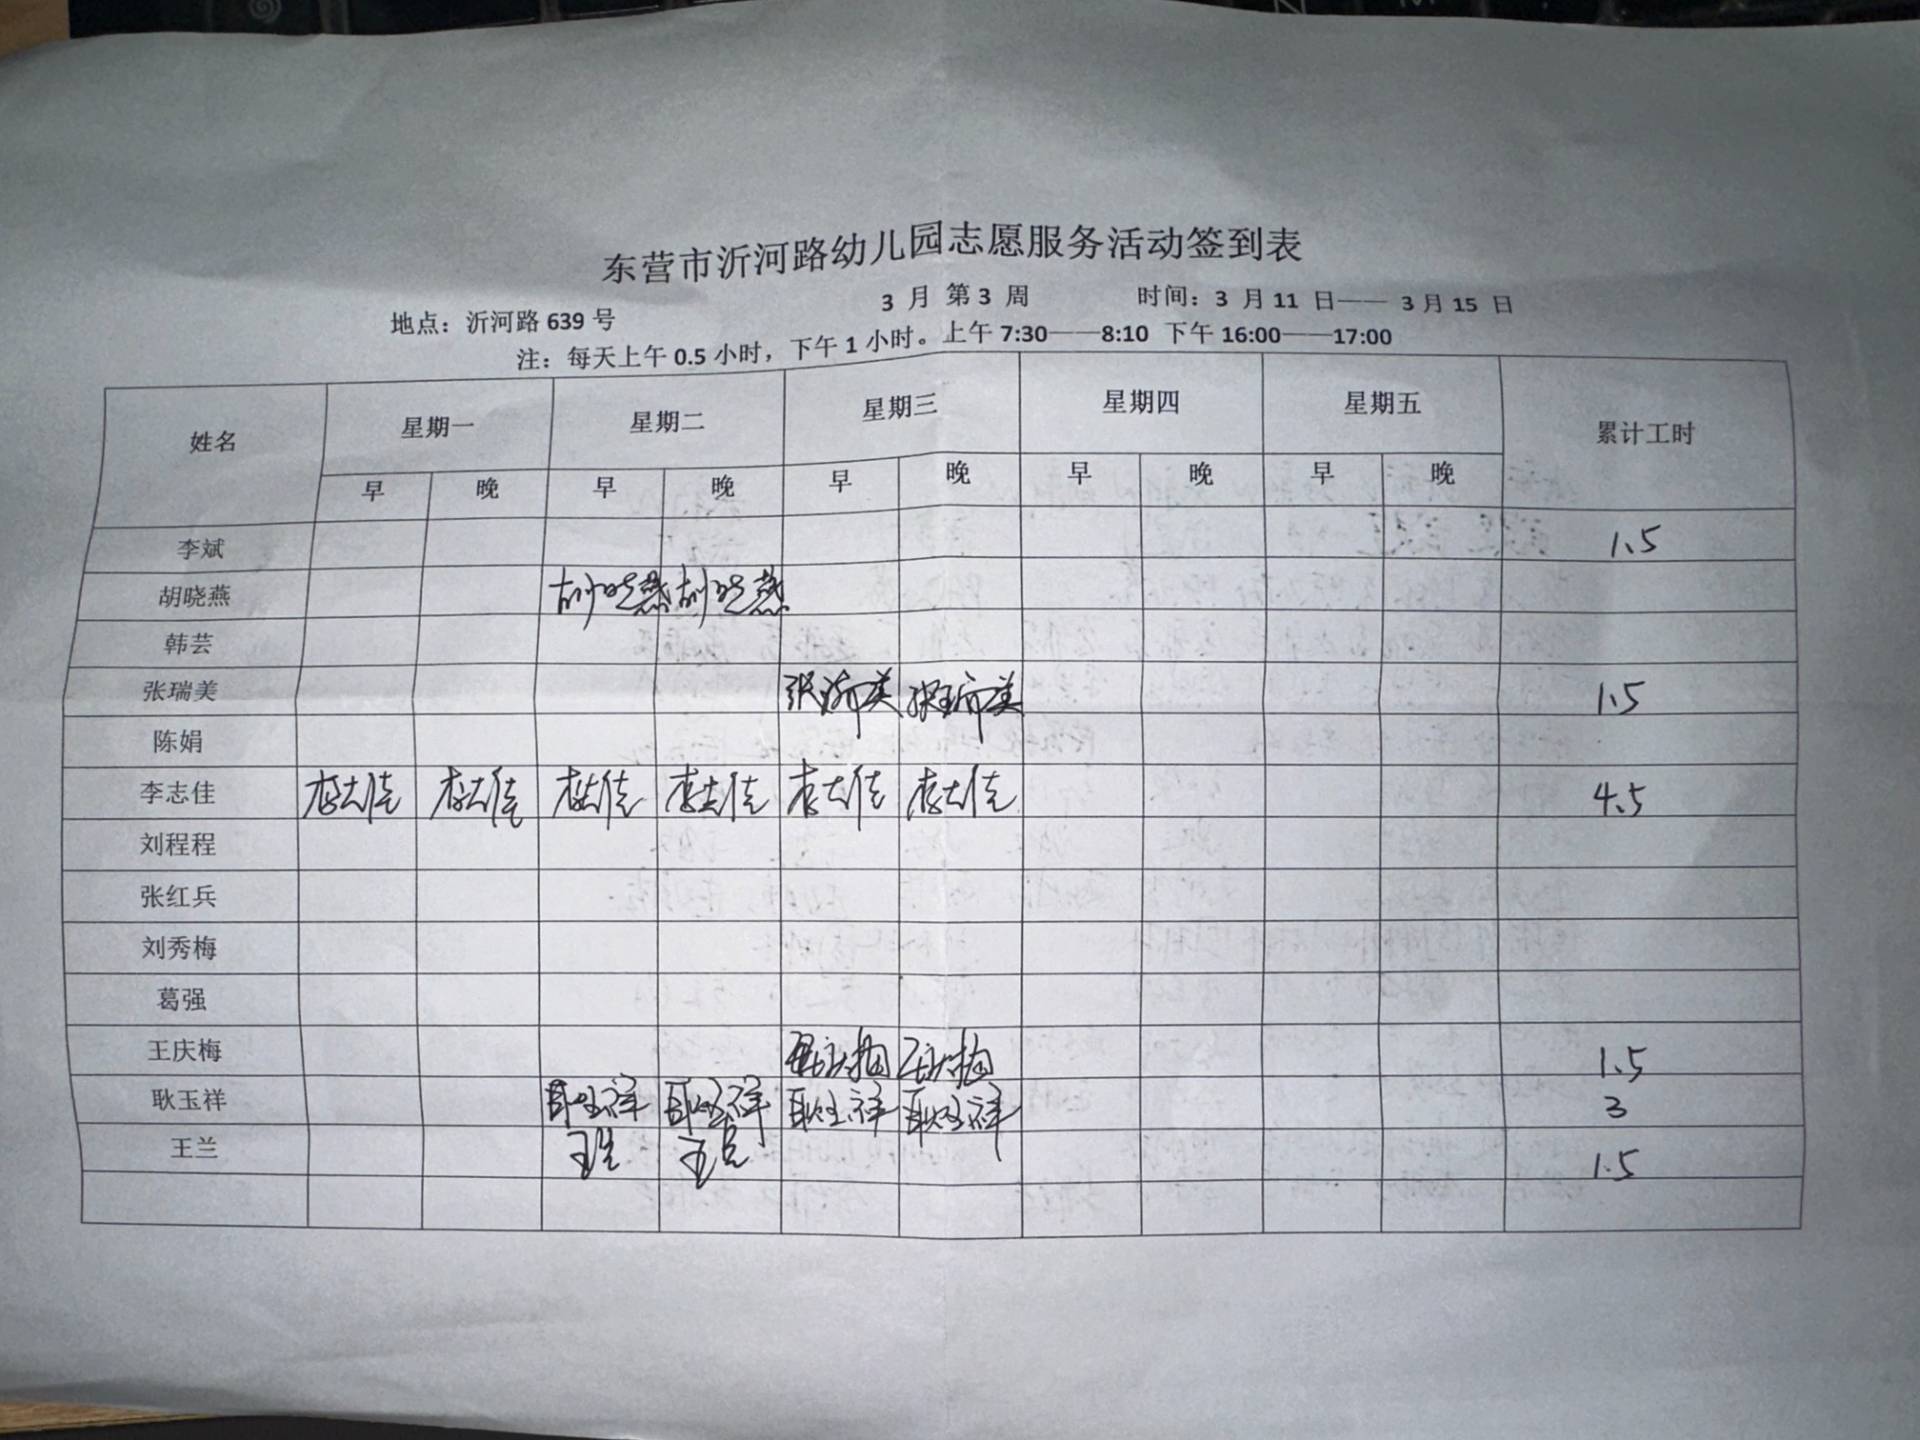 东营市沂河路幼儿园志愿服务活动签到表
3 月 第 3 周 时间：3 月 11 日—— 3 月 15 日
地点：沂河路 639 号
注：每天上午 0.5 小时，下午 1 小时。上午 7:30——8:10 下午 16:00——17:00
姓名 星期一 星期二 星期三 星期四 星期五 累计工时
早 晚 早 晚 早 晚 早 晚 早 晚
李斌 1.5
胡晓燕 胡晓燕 胡晓燕
韩芸
张瑞美 张瑞美 张瑞美 1.5
陈娟
李志佳 李志佳 李志佳 李志佳 李志佳 李志佳 李志佳 4.5
刘程程
张红兵
刘秀梅
葛强
王庆梅 王庆梅 王庆梅 1.5
耿玉祥 耿玉祥 耿玉祥 耿玉祥 耿玉祥 3
王兰 王兰 王兰 1.5